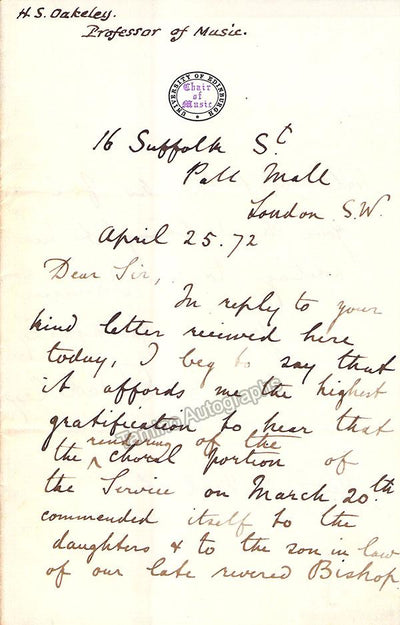 H. S. Oakeley.
Professor of Music.
UNIVERSITY OF EDINBURGH
Chair
of
Music
16 Suffolk St
Pall Mall
London S.W.
April 25. 72
Dear Sir,
In reply to your
kind letter received here
today, I beg to say that
it affords me the highest
Tamino Autographs
gratification to hear that
rendering of the
the ^ choral portion of
the Service on March 20th
commended itself to the
daughters & to the son in law
of our late revered Bishop